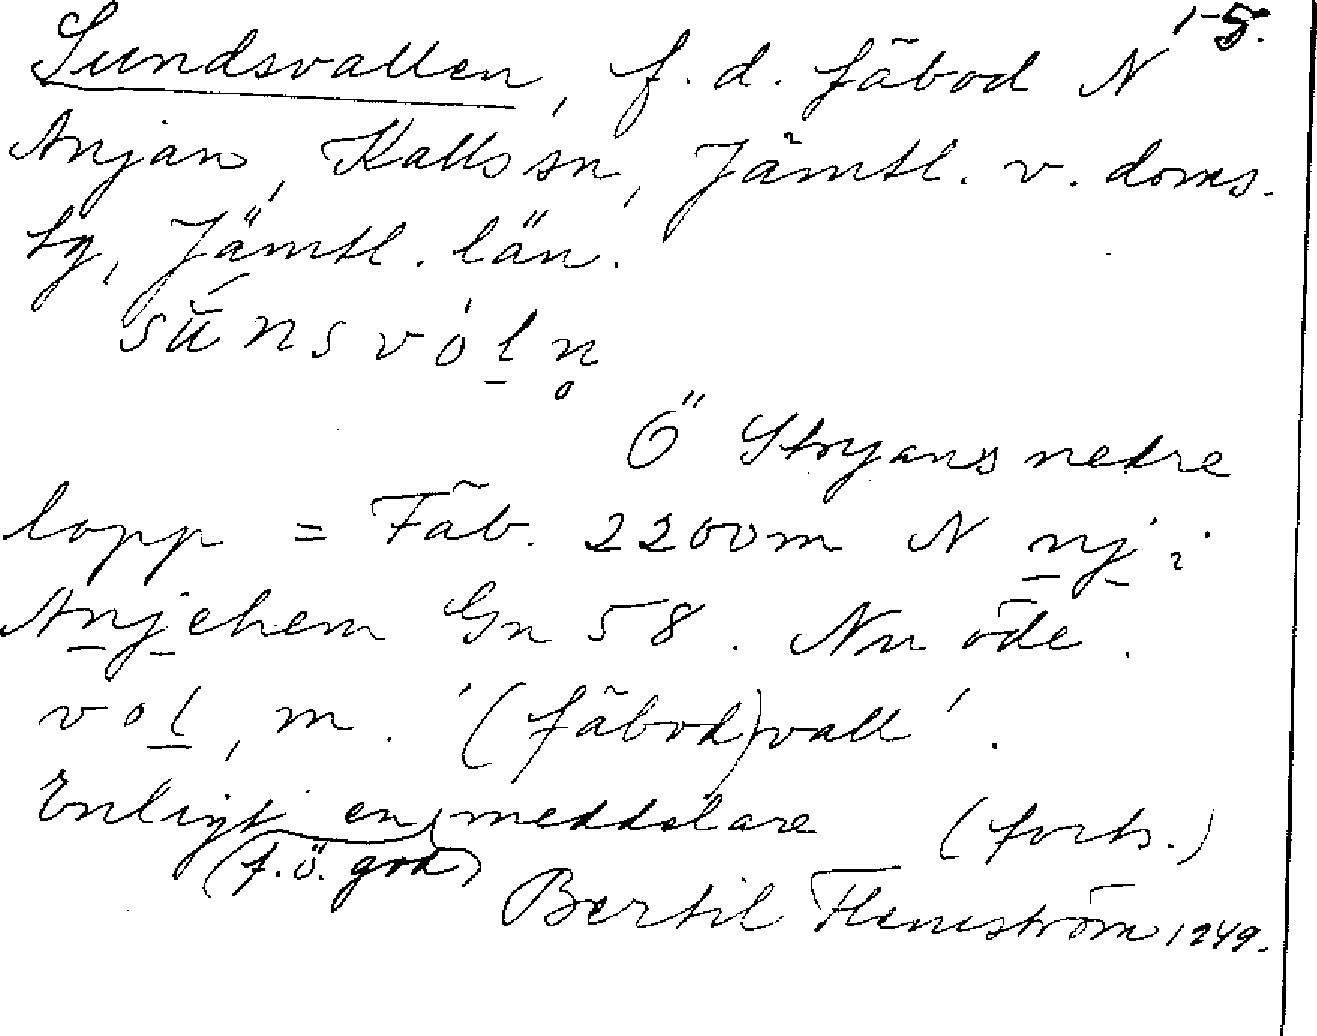 1-5.
Sundsvallen, f. d. fäbod N
Anjan, Kalls sn, Jämtl. v. doms.
tg, Jämtl. län.
sŭ́nsvól̠n̥
Ö Storjans nedre
lopp = Fäb. 2200m N n̠j̠ i
An̠j̠ehem Gn 58. Nu öde.
vol̠, m. '(fäbod)vall'.
Enligt en meddelare (forts.)
(f.ö. god)
Bertil Flemström 1949.